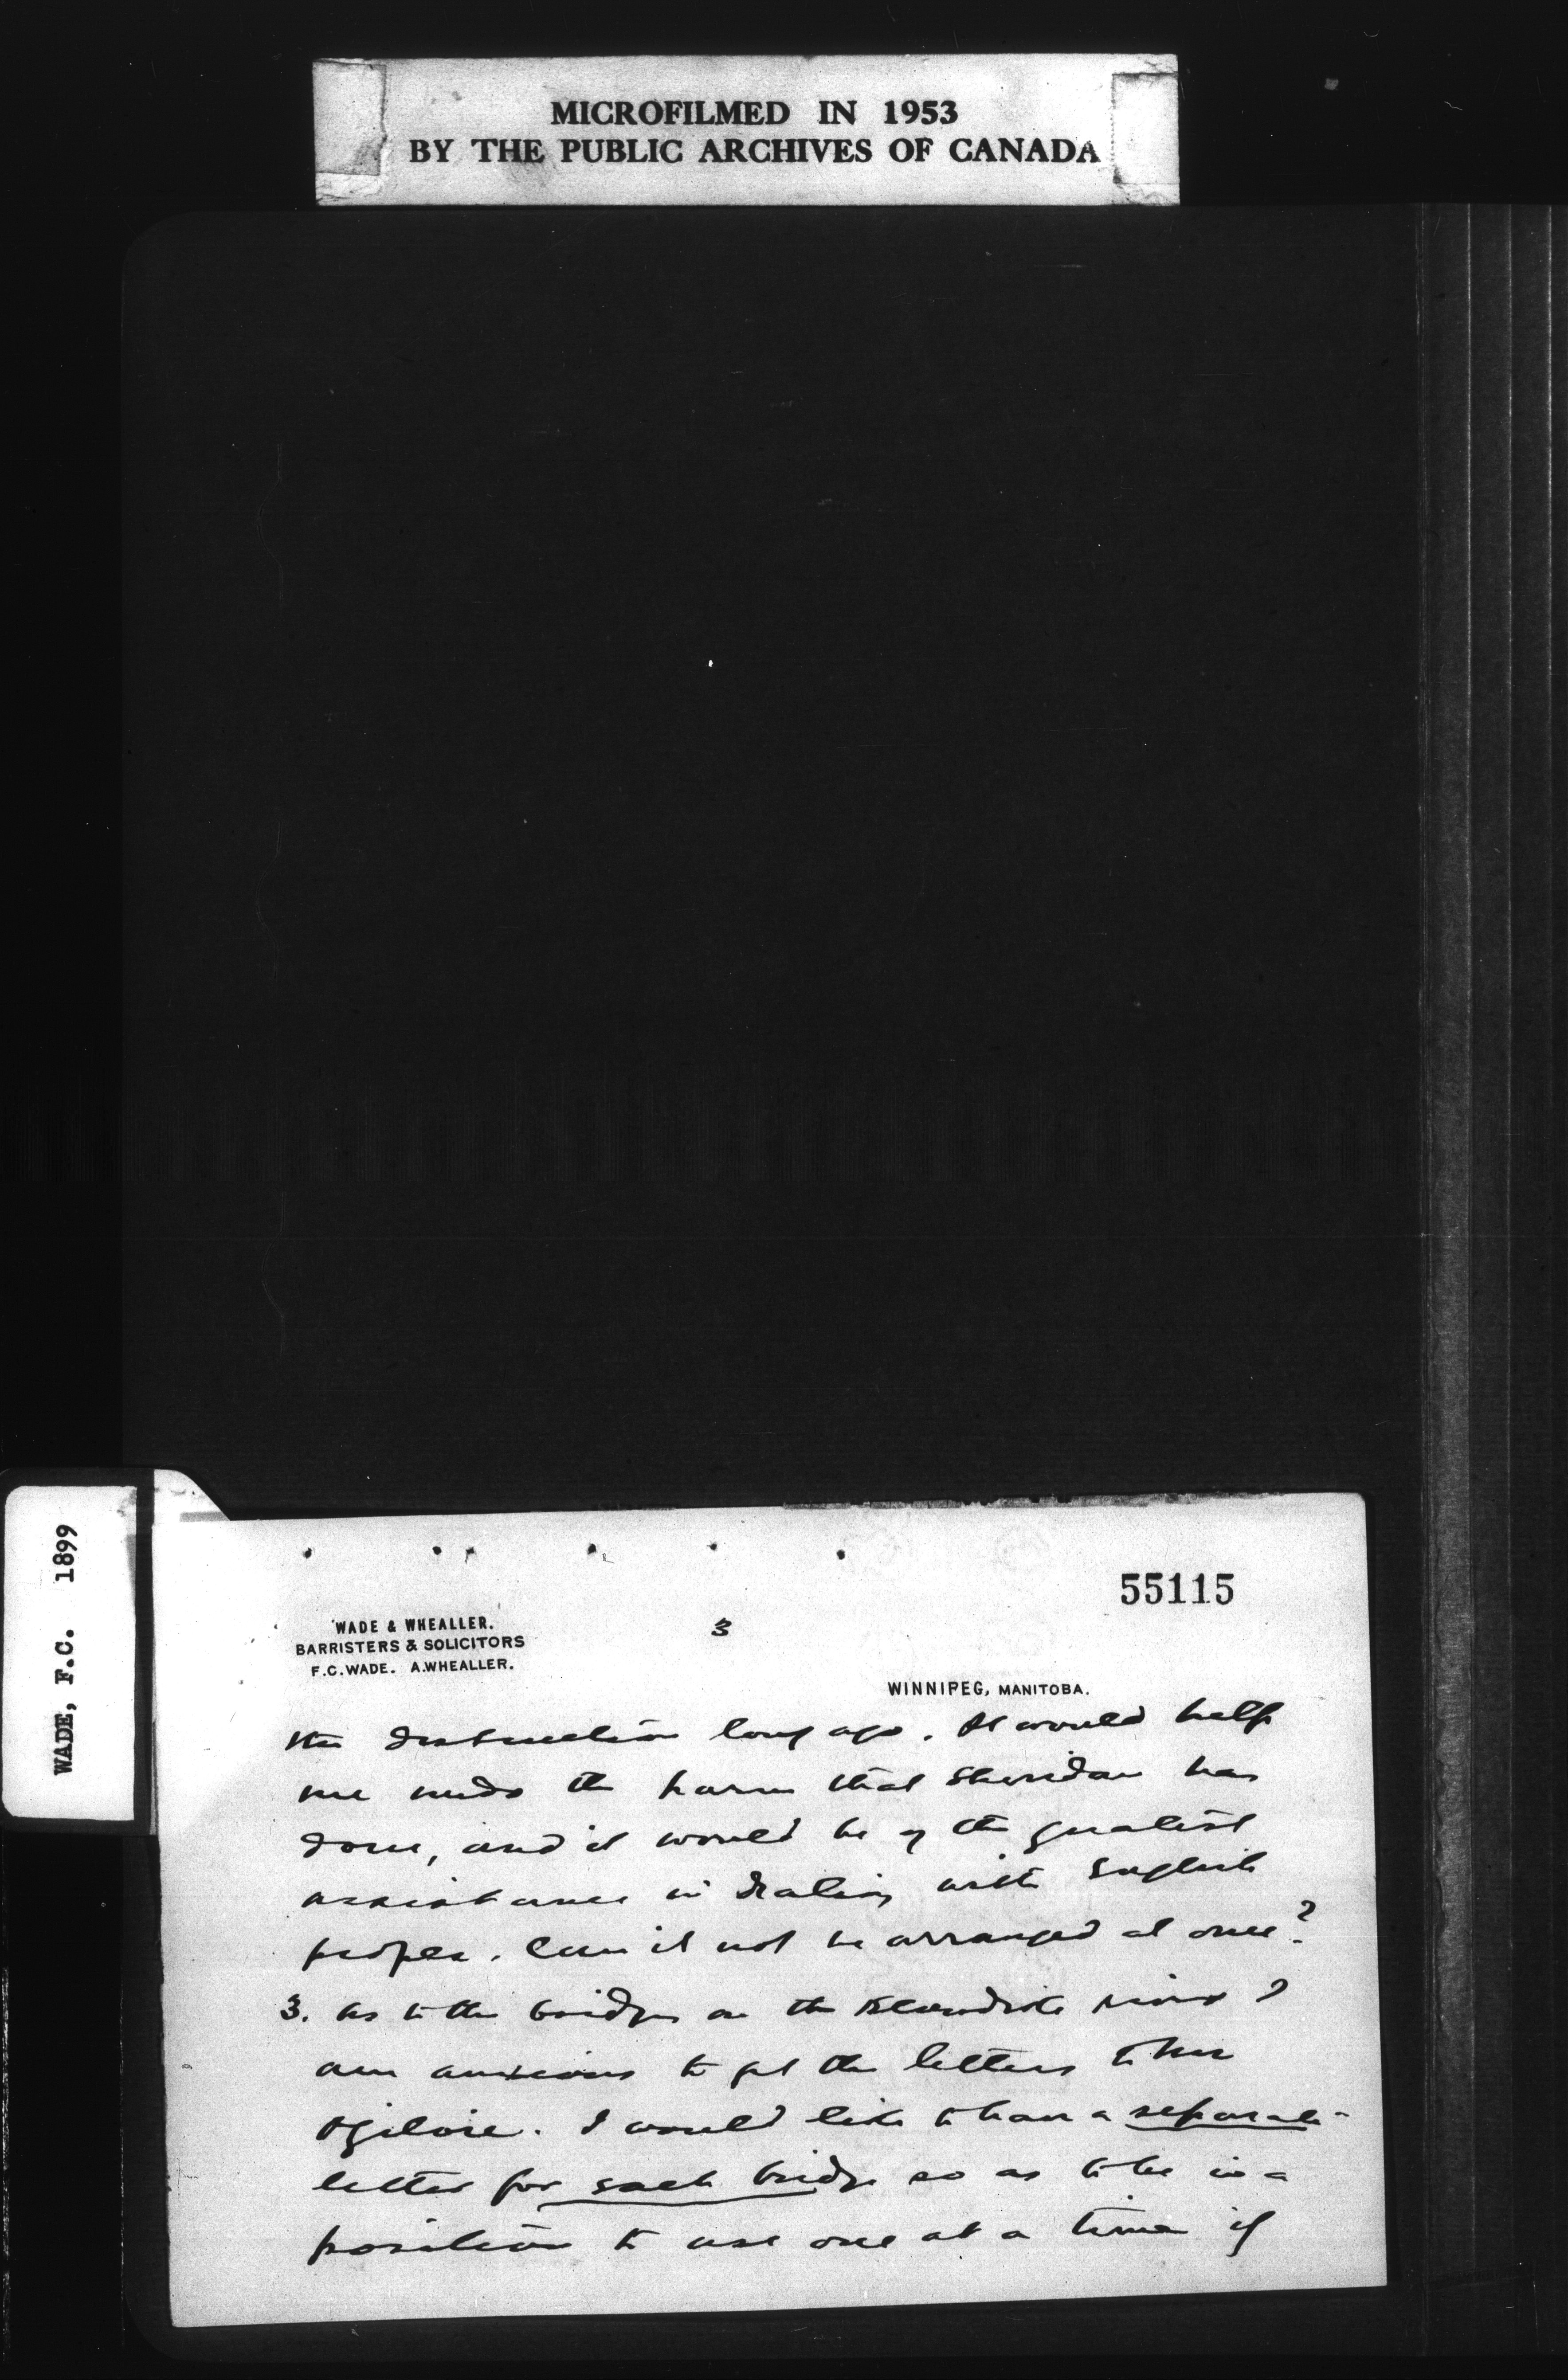 MICROFILMED IN 1953
BY THE PUBLIC ARCHIVES OF CANADA
WADE, F.C. 1899
55115
WADE & WHEALLER.
BARRISTERS & SOLICITORS
F.C. WADE. A. WHEALLER.
3
WINNIPEG, MANITOBA.
the long ago. It would help
me undo the harm that Sheridan has
done, and it would be of the greatest
assistance in dealing with English
people. Can it not be arranged at once?
3. As to the bridges on the Klondike river I
am anxious to get the letters to
Ogilvie. I would like to have a separate
letter for each bridge so as to be in a
position to use one at a time if